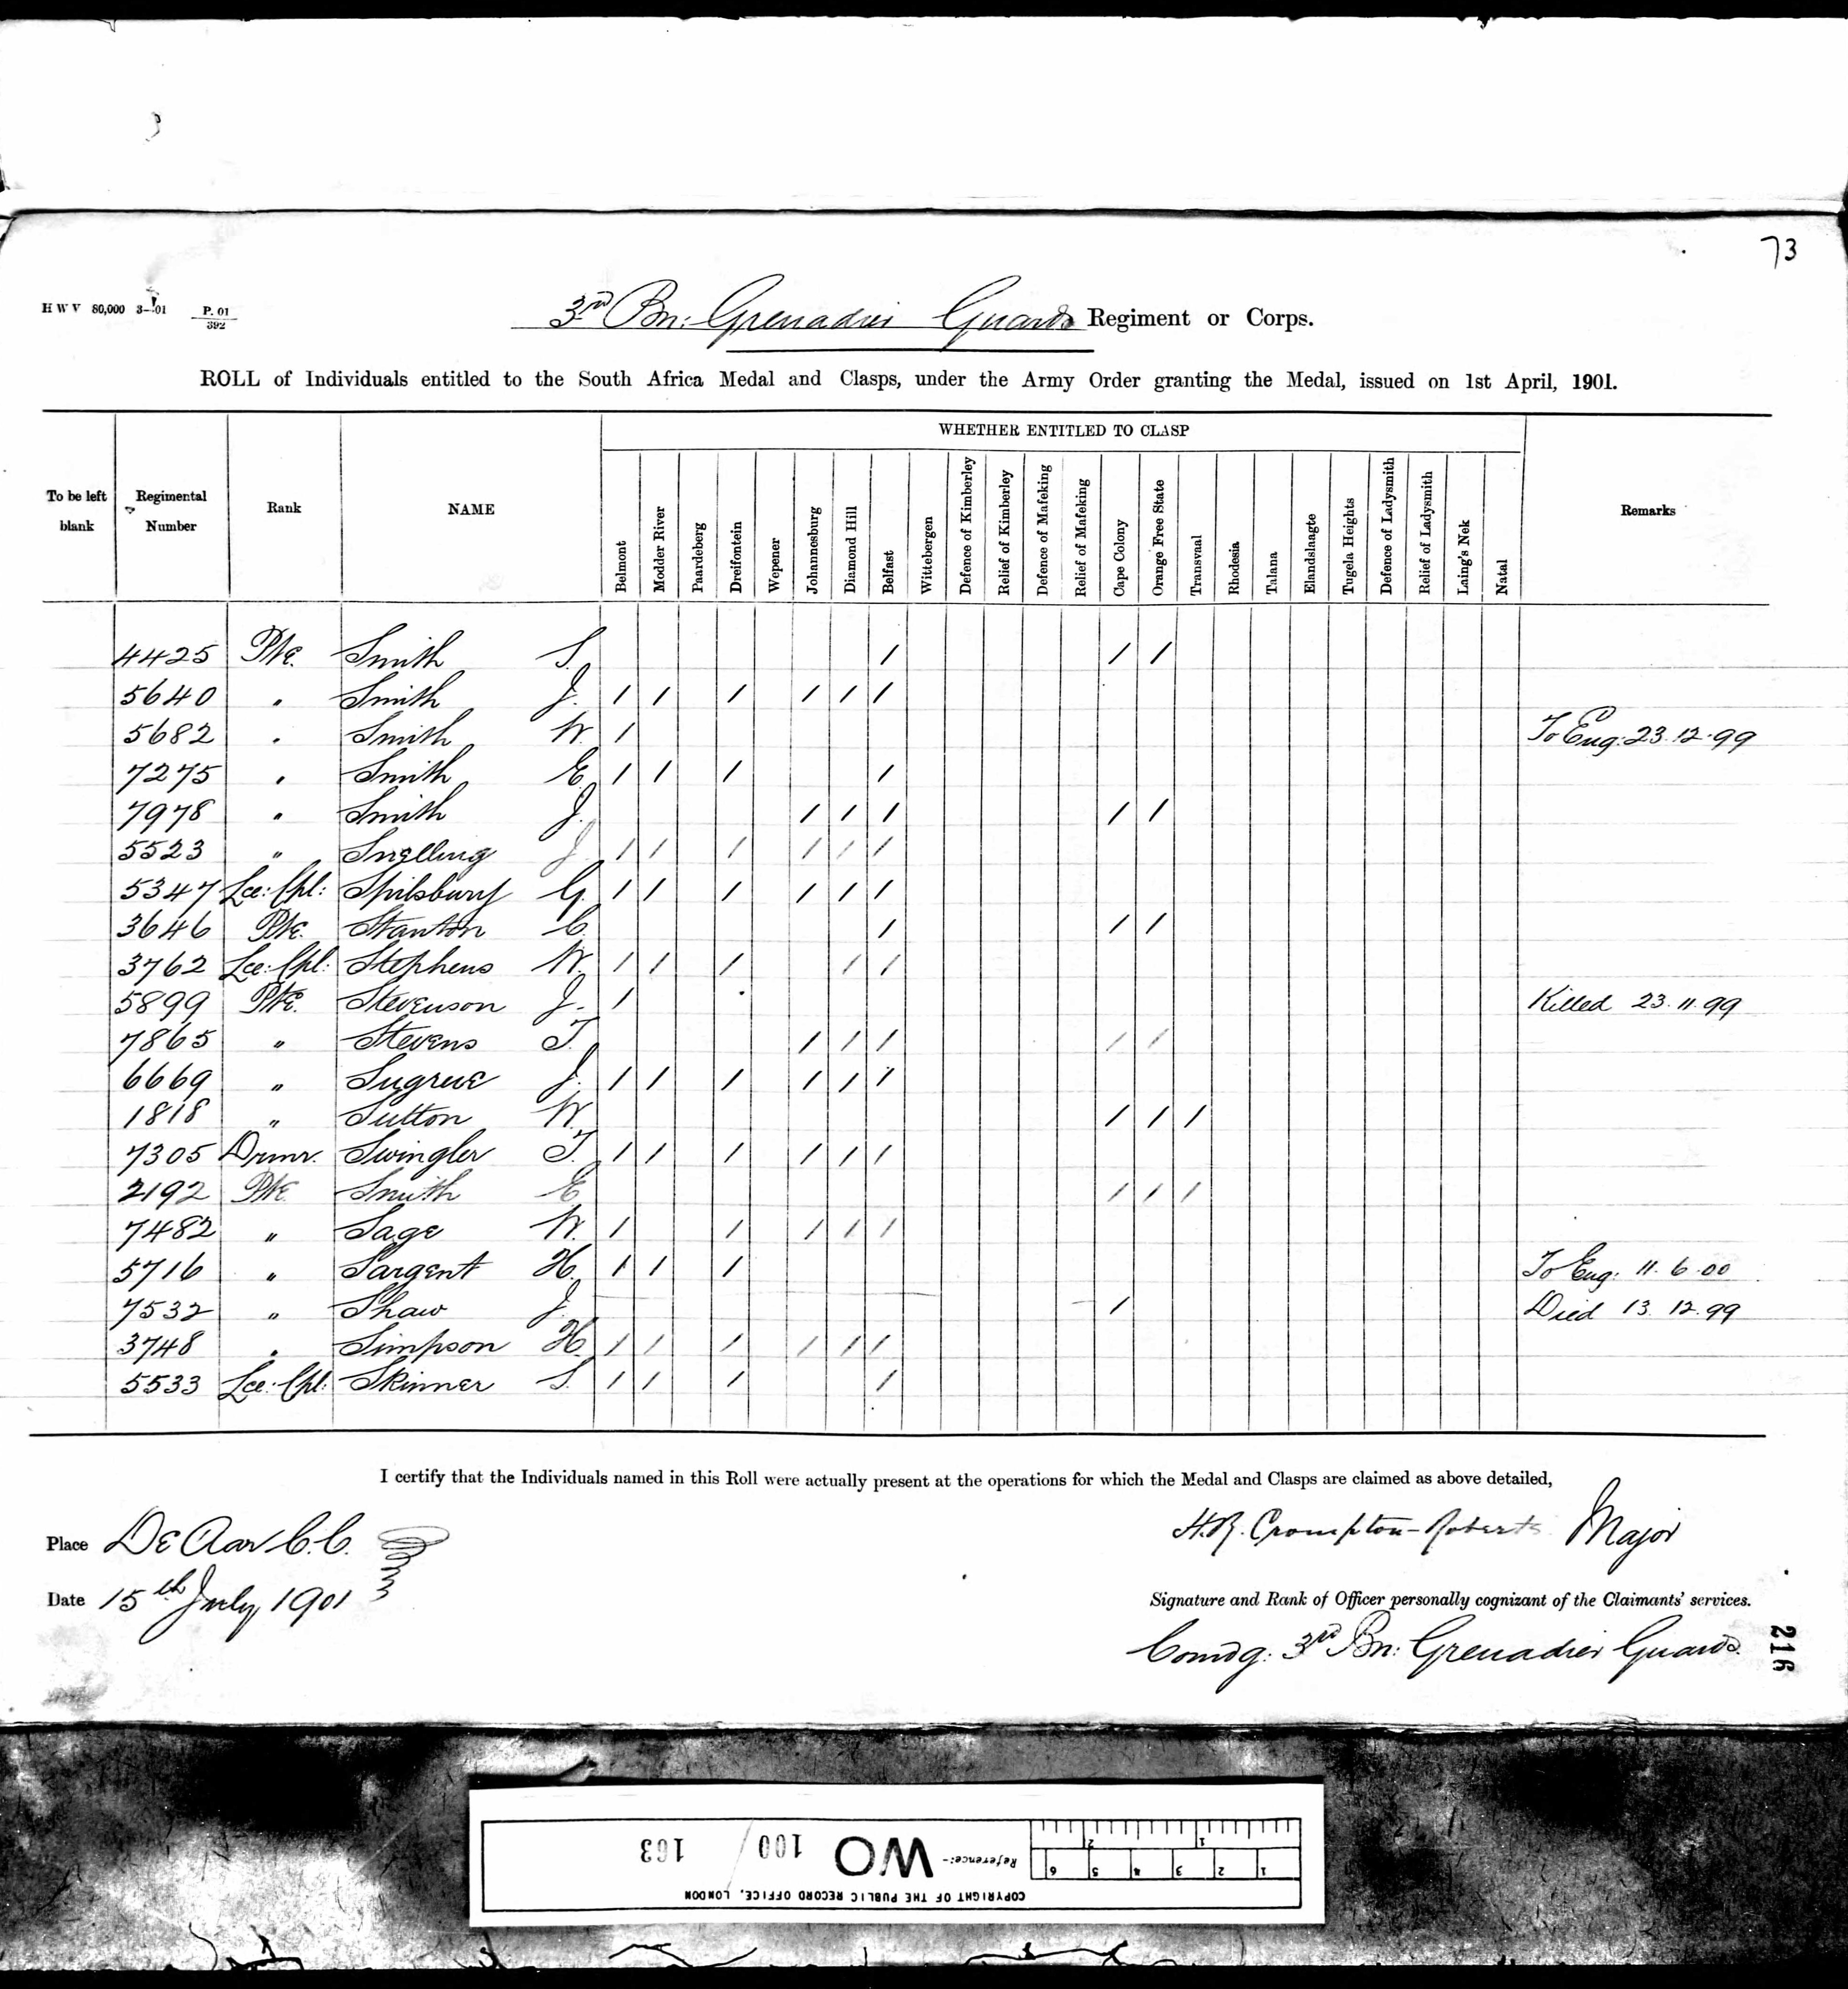 73
H W V 80,000 3—01 P. 01/392
3rd Bn: Grenadier Guards Regiment or Corps.
ROLL of Individuals entitled to the South Africa Medal and Clasps, under the Army Order granting the Medal, issued on 1st April, 1901.
WHETHER ENTITLED TO CLASP
To be left blank Regimental Number Rank NAME Belmont Modder River Paardeberg Dreifontein Wepener Johannesburg Diamond Hill Belfast Wittebergen Defence of Kimberley Relief of Kimberley Defence of Mafeking Relief of Mafeking Cape Colony Orange Free State Transvaal Rhodesia Talana Elandslaagte Tugela Heights Defence of Ladysmith Relief of Ladysmith Laing's Nek Natal Remarks
4425 Pte. Smith S. / / /
5640 " Smith J. / / / / / /
5682 " Smith W. / To Eng: 23.12.99
7275 " Smith E. / / / /
7978 " Smith J. / / / / /
5523 " Snelling J. / / / / / /
5347 Lce: Cpl: Spilsbury G. / / / / / /
3646 Pte. Stanton C. / / /
3762 Lce: Cpl: Stephens W. / / / / /
5899 Pte. Stevenson J. / Killed 23.11.99
7865 " Stevens T. / / / / /
6669 " Sugrue J. / / / / / /
1818 " Sutton W. / / /
7305 Drmr. Swingler T. / / / / / /
2192 Pte. Smith E. / / /
7482 " Sage W. / / / / /
5716 " Sargent H. / / / To Eng: 11.6.00
7532 " Shaw J. / Died 13.12.99
3748 " Simpson H. / / / / / /
5533 Lce: Cpl: Skinner S. / / / /
I certify that the Individuals named in this Roll were actually present at the operations for which the Medal and Clasps are claimed as above detailed,
Place De Aar C.C.
H.R. Crompton-Roberts Major
Date 15th July 1901
Signature and Rank of Officer personally cognizant of the Claimants' services.
Comdg: 3rd Bn: Grenadier Guards.
216
COPYRIGHT OF THE PUBLIC RECORD OFFICE, LONDON
Reference:- WO 100 / 163
1 2 3 4 5 6
1 2